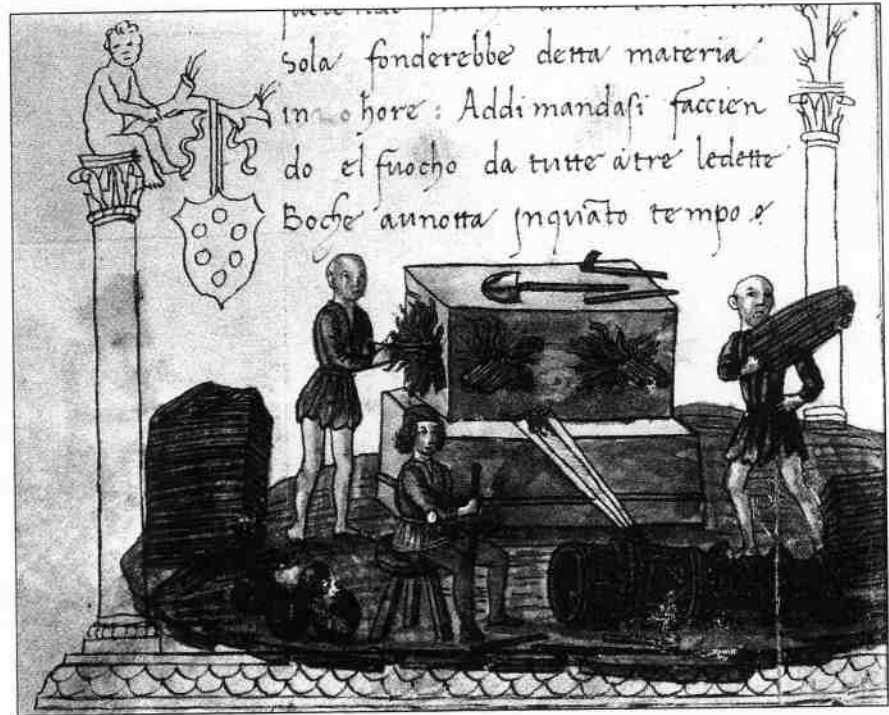 Sola fonderebbe detta materia
in hore : Addimandasi faccien
do el fuocho da tutte atre ledette
Boche aunotta inquiato tempo